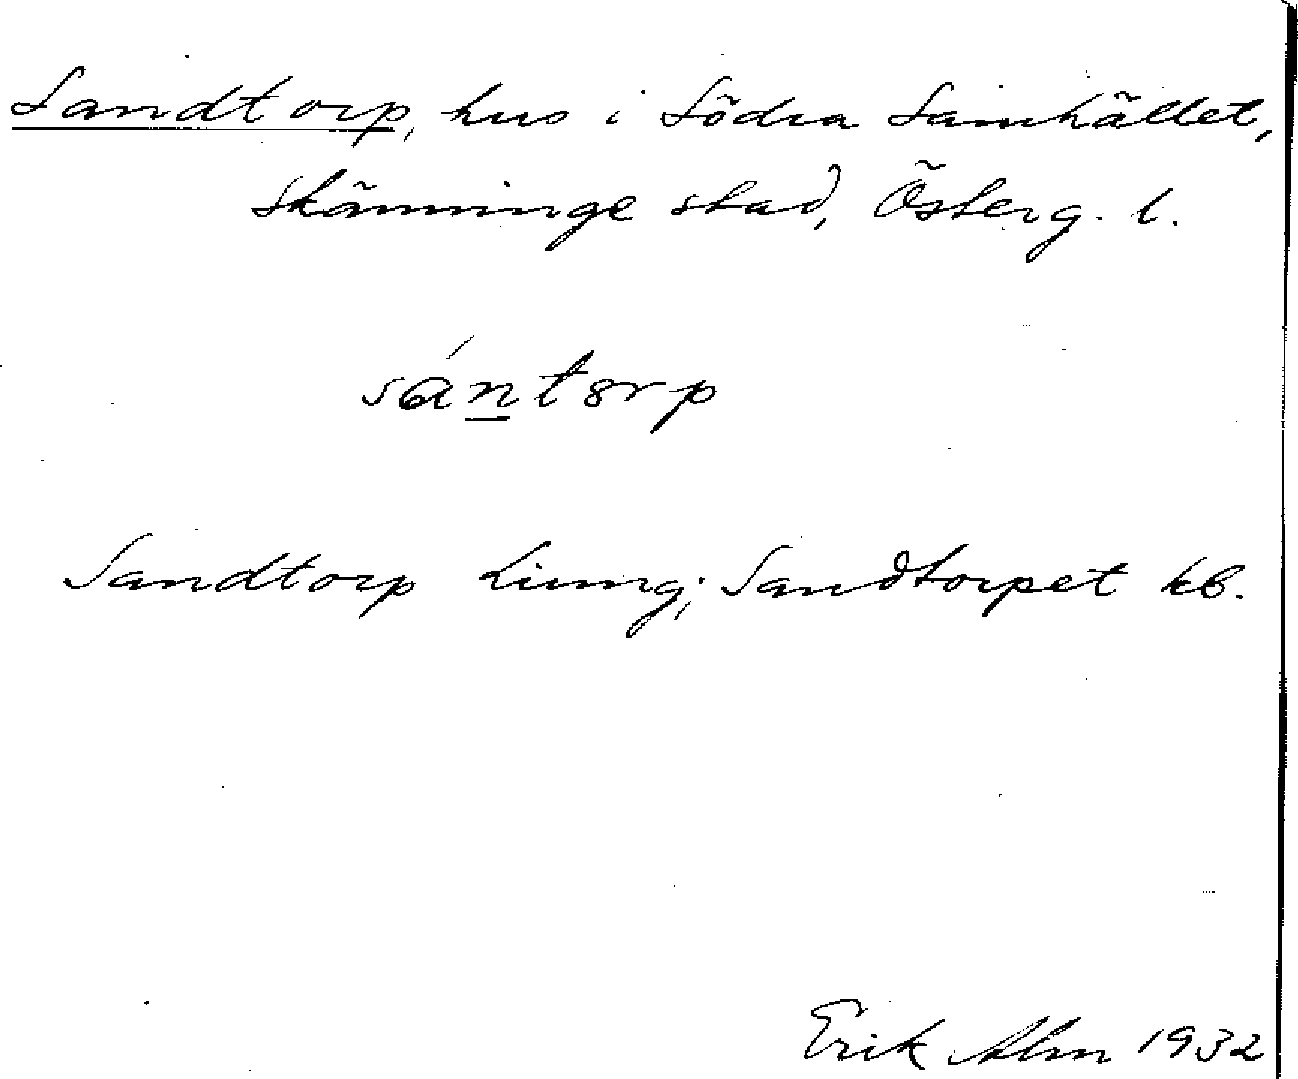 Sandtorp, hus i Södra Samhället,
Skänninge stad, Österg. l.
sántorp
Sandtorp Liung; Sandtorpet kb.
Erik Alm 1932